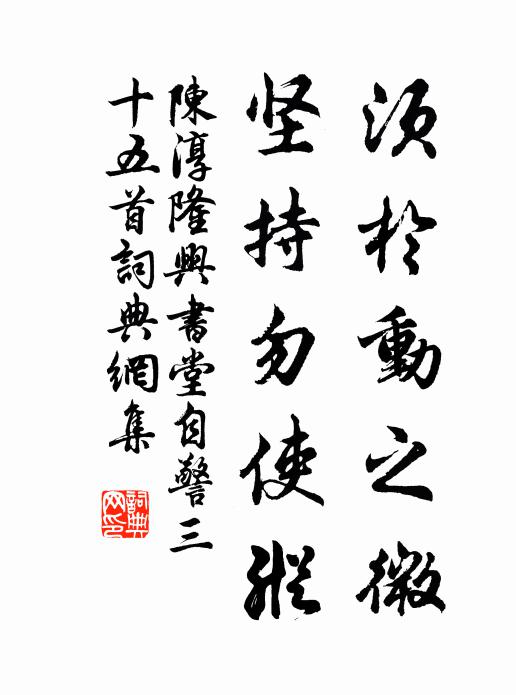 须於動之微
坚持勿使縱
陳淳隆興書堂自警三
十五首詞典網集
詞典网印